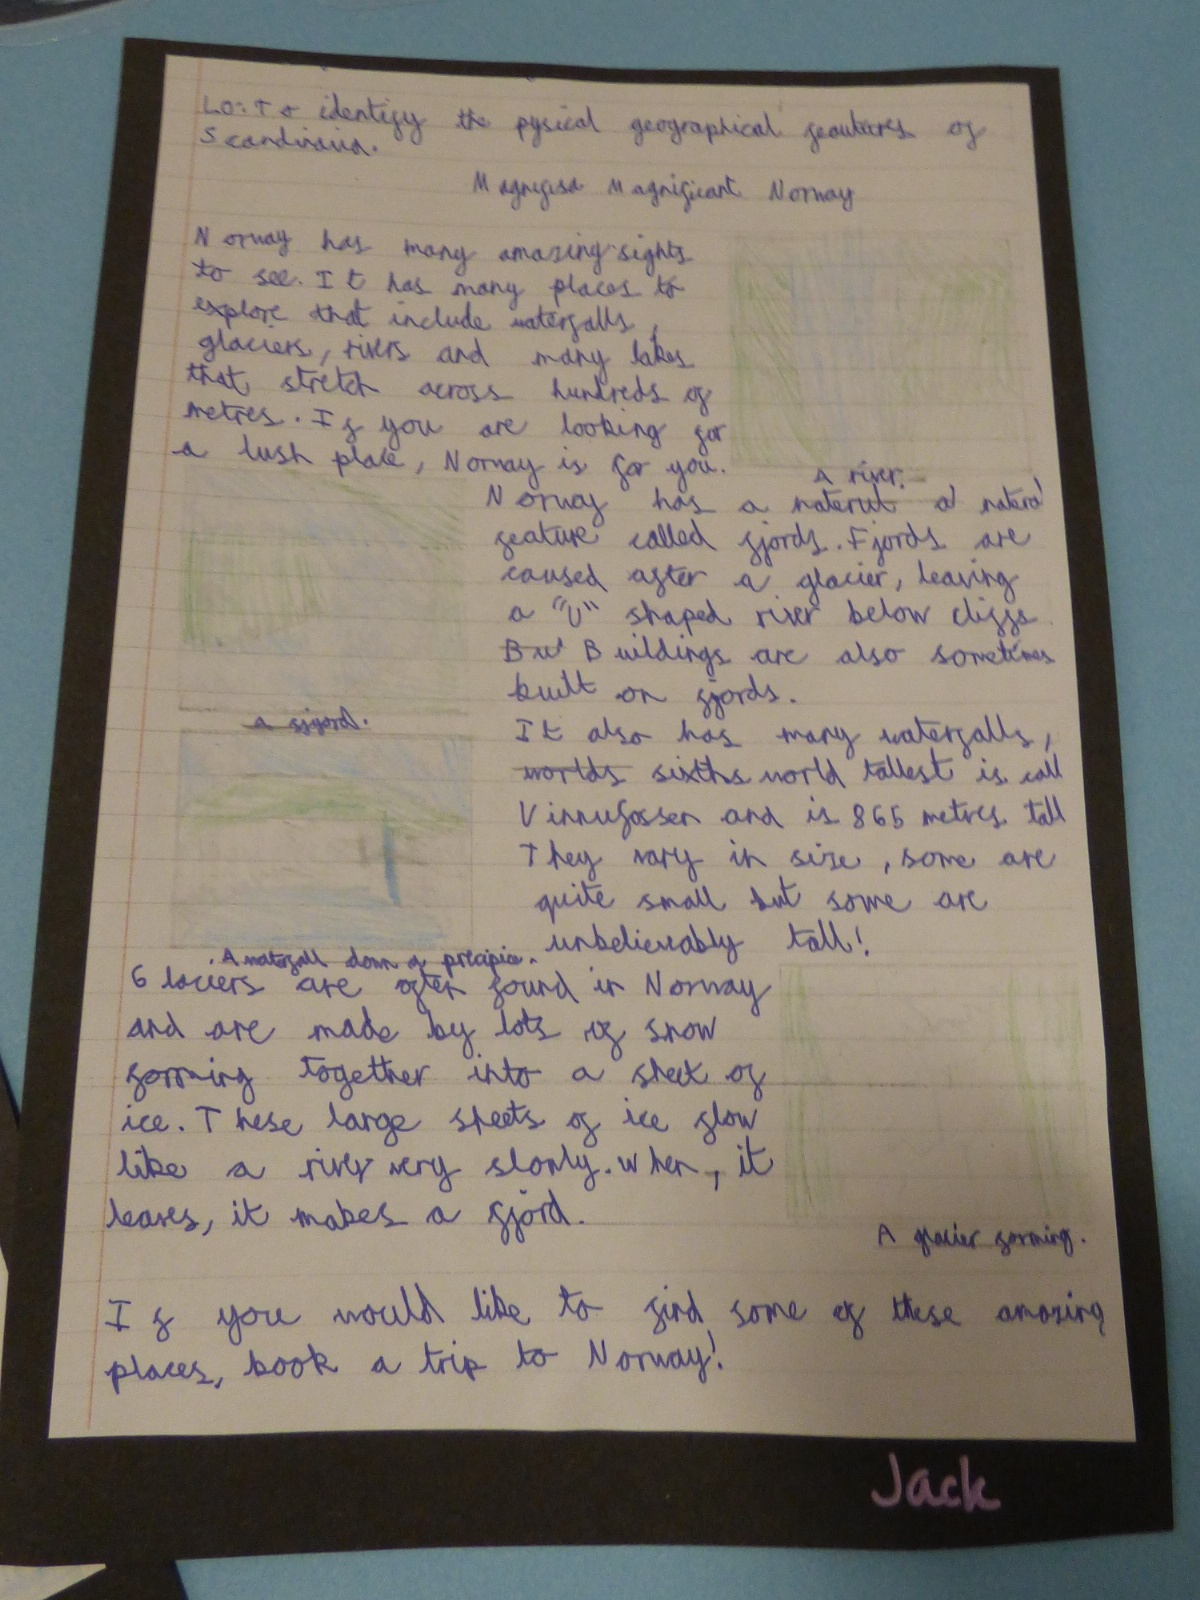 LO: To identify the pysical geographical feautures of
Scandinavia.
Magnifisa Magnificant Norway
Norway has many amazing sights
to see. It has many places to
explore that include waterfalls,
glaciers, rivers and many lakes
that stretch across hundreds of
metres. If you are looking for
a lush place, Norway is for you.
A river.
Norway has a naterul a natural
feature called fjords. Fjords are
caused after a glacier, leaving
a "U" shaped river below cliffs.
Bu Buildings are also sometimes
built on fjords.
a fjord.
It also has many waterfalls,
worlds sixths world tallest is call
Vinnufossen and is 865 metres tall
They vary in size, some are
quite small but some are
unbelievably tall!
A waterfall down a precipice.
Glaciers are often found in Norway
and are made by lots of snow
forming together into a sheet of
ice. These large sheets of ice flow
like a river very slowly. when, it
leaves, it makes a fjord.
A glacier forming.
If you would like to find some of these amazing
places, book a trip to Norway!
Jack